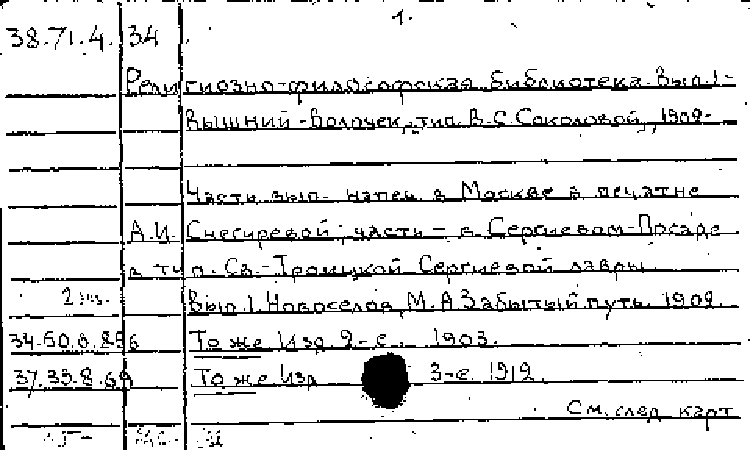 1.
38.71.4.34
Религиозно-философская библиотека. Вып. 1-
Вышний-Волочек, тип. В.С. Соколовой, 1902-
Часть вып. напеч. в Москве в печатне
А.И. Снегиревой, часть - в Сергиевом-Посаде
в тип. Св.-Троицкой Сергиевой лавры.
2 экз. Вып. 1. Новоселов, М.А. Забытый путь. 1902.
34.60.8.256 То же. Изд. 2-е. 1903.
37.33.8.69 То же. Изд. 3-е. 1912.
См. след. карт.